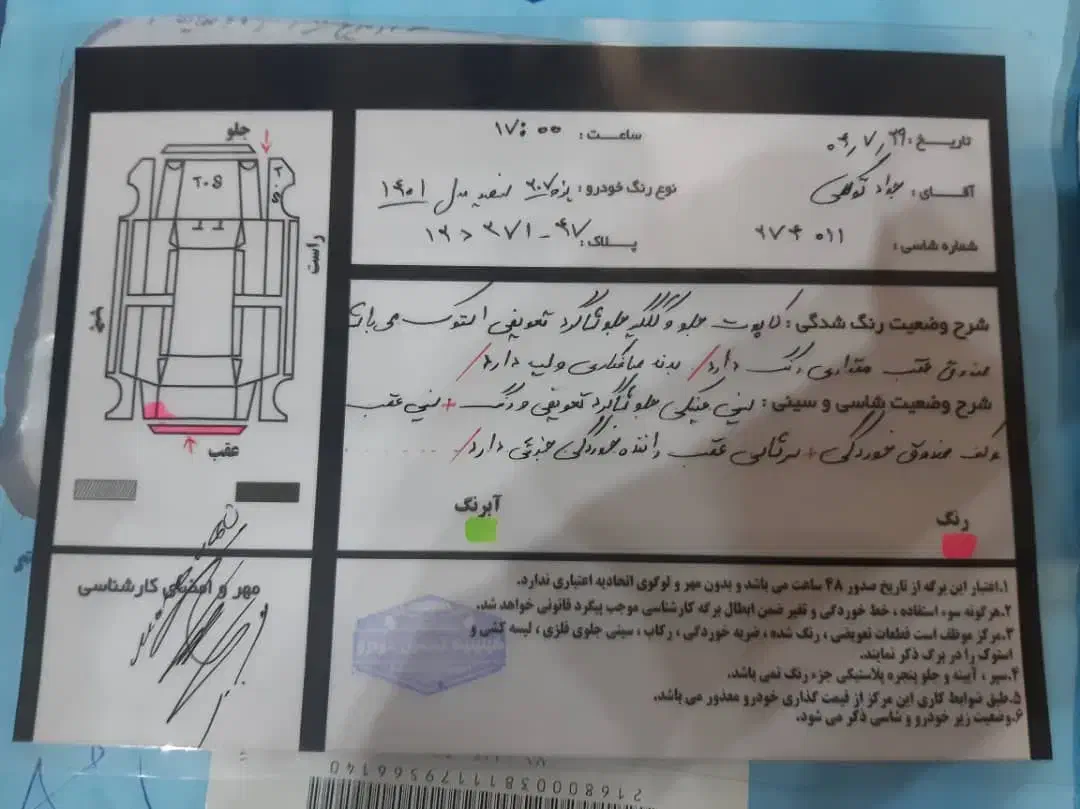 تاریخ: ۰۴/۷/۲۹
ساعت: ۱۷:۰۰
آقای: جواد
نوع رنگ خودرو: پژو ۲۰۷ سفید مدل ۱۴۰۱
شماره شاسی: ۲۷۴۰۱۱
پلاک:
شرح وضعیت رنگ شدگی: کاپوت جلو و گلگیر جلو شاگرد تعویض استوک می باشد
صندوق عقب مقداری رنگ دارد/ بدنه صافکاری و لیسه دارد/
شرح وضعیت شاسی و سینی: سینی جلو شاگرد تعویض و رنگ + سینی عقب
و کف صندوق خوردگی + سرشاسی عقب راننده خوردگی جزئی دارد/
آبرنگ
رنگ
جلو
راست
چپ
عقب
مهر و امضای کارشناسی
۱.اعتبار این برگه از تاریخ صدور ۴۸ ساعت می باشد و بدون مهر و لوگوی اتحادیه اعتباری ندارد.
۲.هرگونه سوء استفاده، خط خوردگی و تغیر ضمن ابطال برگه کارشناسی موجب پیگرد قانونی خواهد شد.
۳.مرکز موظف است قطعات تعویضی، رنگ شده، ضربه خوردگی، رکاب، سینی جلوی فلزی، لیسه کشی و
استوک را در برگ ذکر نمایند.
۴.سپر، آیینه و جلو پنجره پلاستیکی جزء رنگ نمی باشد.
۵.طبق ضوابط کاری این مرکز از قیمت گذاری خودرو معذور می باشد.
۶.وضعیت زیر خودرو و شاسی ذکر می شود.
216800038111179366140